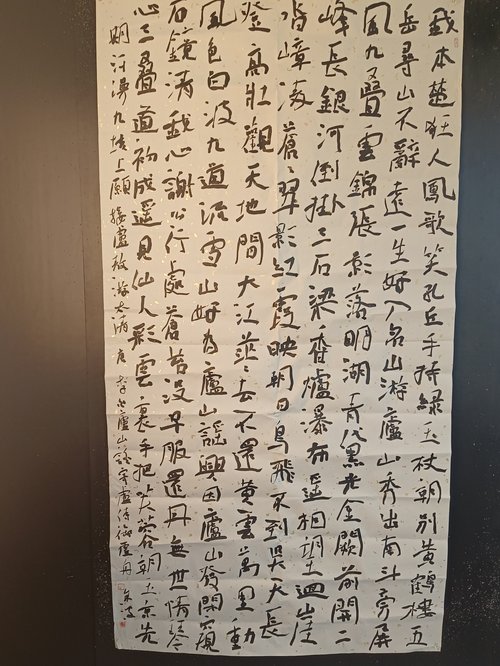 我本楚狂人鳳歌笑孔丘手持緑玉杖朝別黄鶴樓五
岳尋山不辭遠一生好入名山游廬山秀出南斗旁屏
風九疊雲錦張影落明湖青代黑光金闕前開二
峰長銀河倒掛三石梁香爐瀑布遥相望迴崖
沓嶂凌蒼〻翠影紅霞映朝日鳥飛不到吳天長
登高壯觀天地間大江茫〻去不還黄雲萬里動
風色白波九道流雪山好為廬山謡興因廬山發閑窺
石鏡清我心謝公行處蒼苔没早服還丹無世情琴
心三疊道初成遥見仙人彩雲裏手把芙蓉朝玉京先
期汗漫九垓上願接盧敖游太清 唐李白廬山謡寄盧侍御虚舟